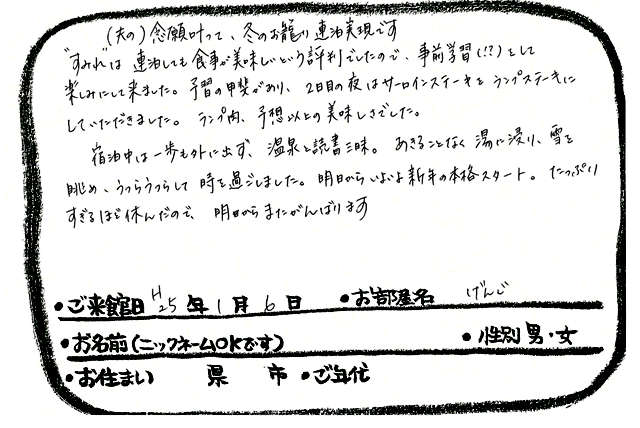 (夫の)念願叶って、冬のお籠り連泊実現です
"すみれ"は 連泊しても食事が美味しいという評判でしたので、事前学習(!?)として
楽しみにして来ました。予習の甲斐があり、2日目の夜はサーロインステーキをランプステーキに
していただきました。ランプ肉、予想以上の美味しさでした。
宿泊中は一歩も外に出ず、温泉と読書三昧。あきることなく湯に浸り、雪を
眺め、うつらうつらして時を過ごしました。明日からいよいよ新年の本格スタート。たっぷり
すぎるほど休んだので、明日からまたがんばります
•ご来館日 H25年1月6日 •お部屋名 げんじ
•お名前(ニックネームOKです) •性別 男・女
•お住まい 県 市 •ご年代